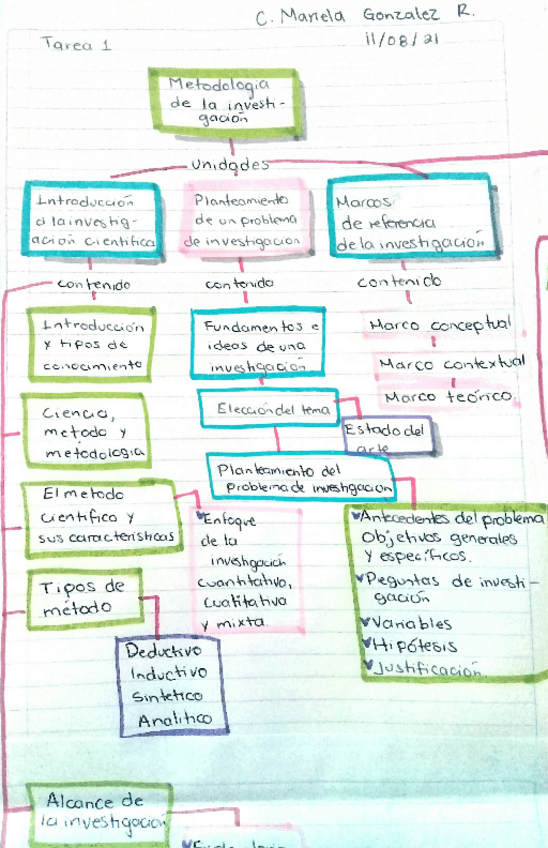 C. Mariela Gonzalez R.
Tarea 1
11/08/21
Metodologia
de la investi-
gación
unidades
Introducción
a la investig-
ación cientifica
Planteamiento
de un problema
de investigacion
Marcos
de referencia
de la investigación
contenido
contenido
contenido
Introducción
y tipos de
conocimiento
Fundamentos e
ideas de una
investigación
Marco conceptual
Marco contextual
Marco teórico.
Ciencia,
metodo y
metodologia
Elección del tema
Estado del
arte
Planteamiento del
problema de investigacion
El metodo
cientifico y
sus caracteristicas
Enfoque
de la
investigación
cuantitativo,
cualitativa
y mixta.
Antecedentes del problema
Objetivos generales
y especificos.
Peguntas de investi-
gación
Variables
Hipótesis
Justificación.
Tipos de
método
Deductivo
Inductivo
Sintetico
Analitico
Alcance de
la investigación